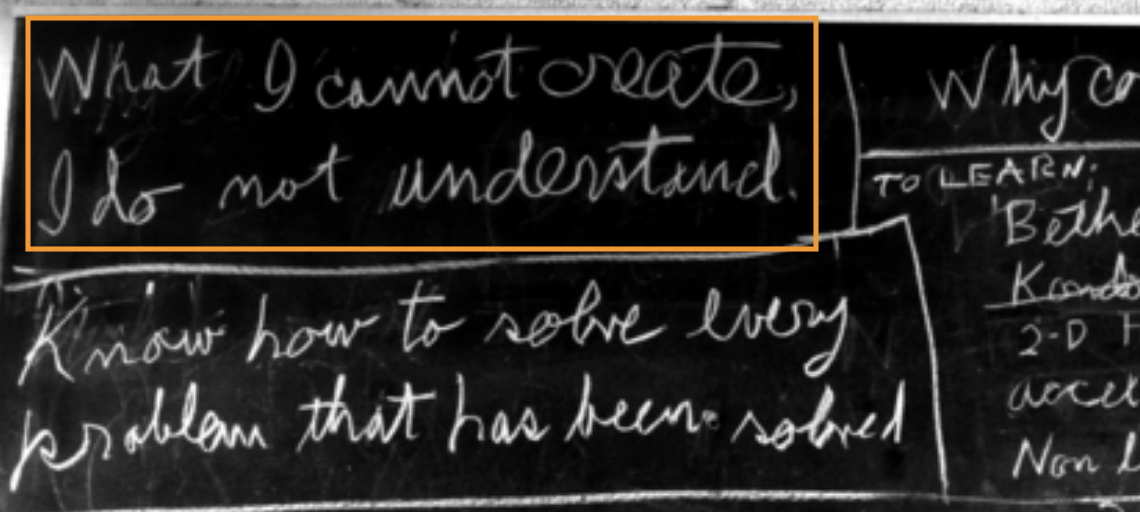 What I cannot create,
I do not understand.
Know how to solve every
problem that has been solved
Why
TO LEARN:
2-D
Non